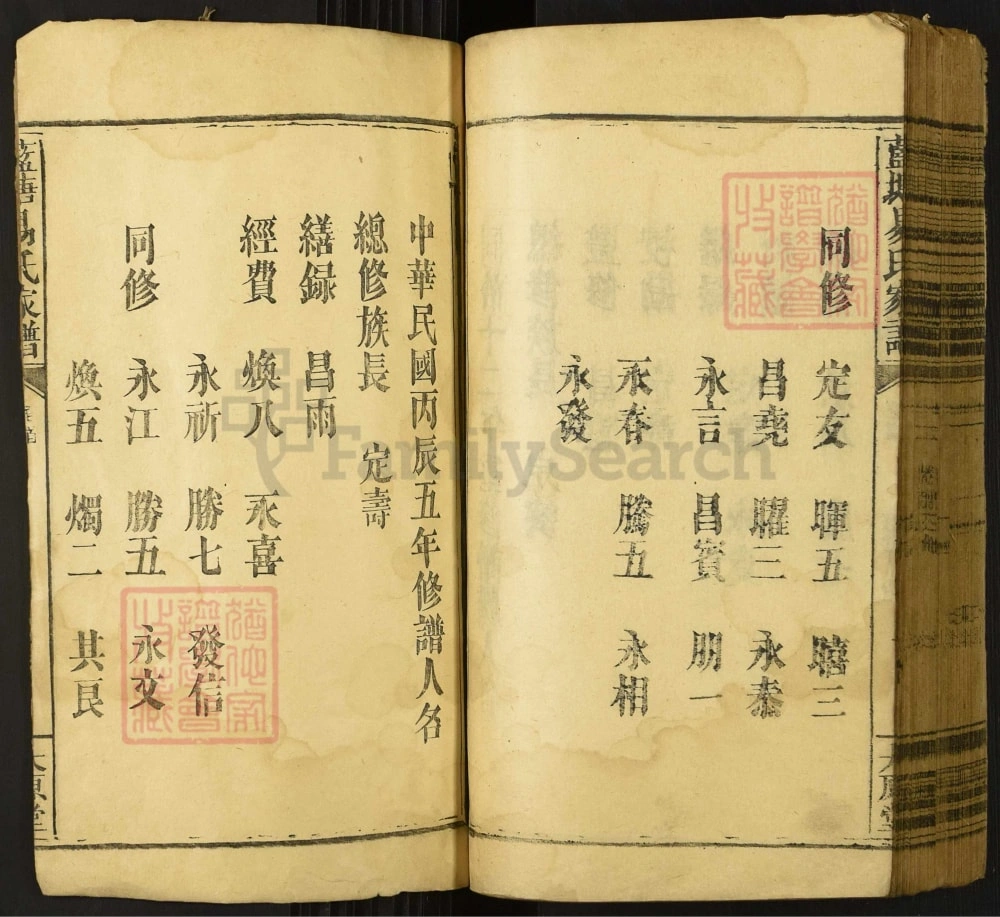 同修 定友 暉五 曦三
昌堯 曜三 永泰
永言 昌賓 朋一
永春 騰五 永相
永發
中華民國丙辰五年修譜人名
總修族長 定壽
繕録 昌雨
經費 煥八 永喜
永祈 勝七 發信
同修 永江 勝五 永文
煥五 燭二 其民
藍塘易氏家譜
太原堂
FamilySearch